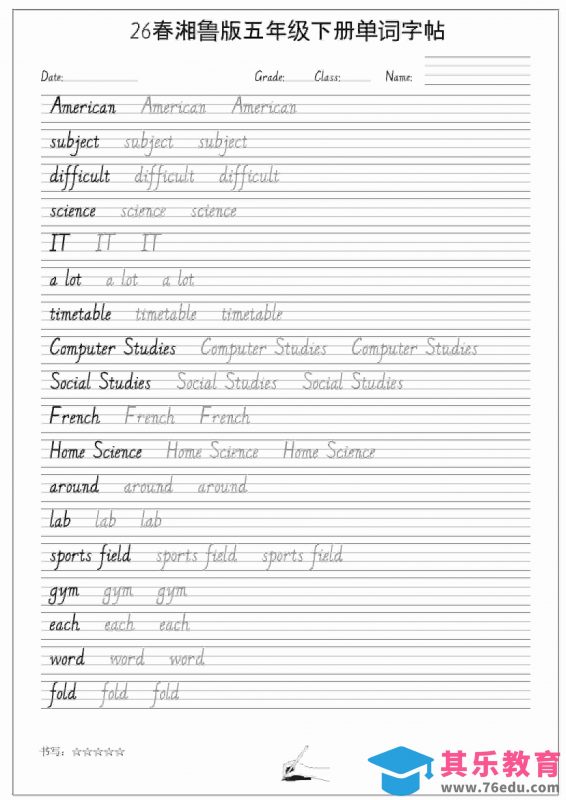 26春湘鲁版五年级下册单词字帖
Date: Grade: Class: Name:
American American American
subject subject subject
difficult difficult difficult
science science science
IT IT IT
a lot a lot a lot
timetable timetable timetable
Computer Studies Computer Studies Computer Studies
Social Studies Social Studies Social Studies
French French French
Home Science Home Science Home Science
around around around
lab lab lab
sports field sports field sports field
gym gym gym
each each each
word word word
fold fold fold
书写：☆☆☆☆☆
其乐教育
www.76edu.com